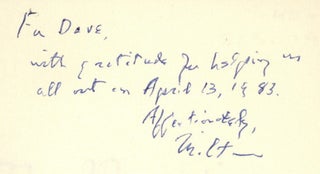 For Dave,
with gratitude for helping us
all out on April 13, 1983.
Affectionately,
Milton